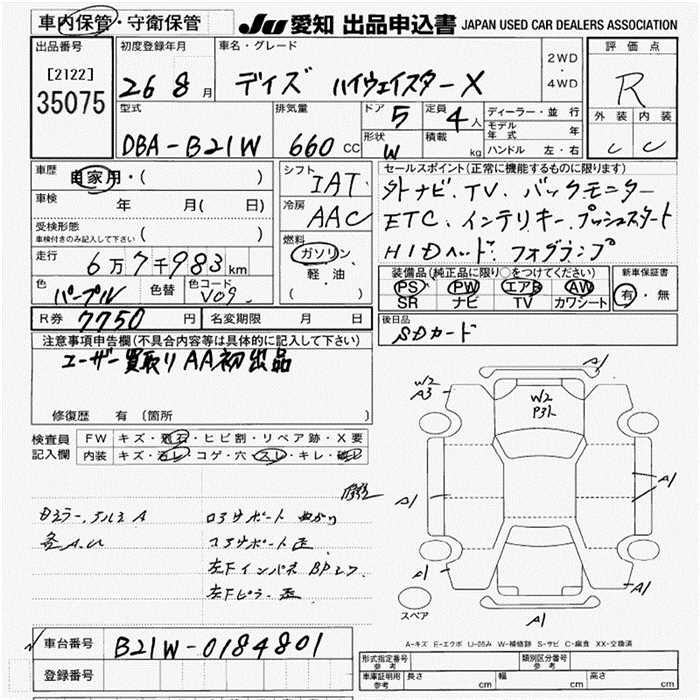 車内保管・守衛保管
JU 愛知 出品申込書 JAPAN USED CAR DEALERS ASSOCIATION
出品番号
[2122]
35075
初度登録年月
26 8 月
車名・グレード
デイズ ハイウェイスターX
2WD
・
4WD
評価点
R
外装 内装
C C
型式
DBA-B21W
排気量
660 CC
ドア 5
形状 W
定員 4 人
積載 kg
ディーラー・並行
モデル年式 年
ハンドル 左・右
車歴
自家用・( )
車検
年 月( 日)
受検形態
車検付きのみ記入して下さい ( )
走行
6万7千983 km
色
パープル
色替
色コード
V09
シフト
IAT
冷房
AAC
燃料
ガソリン
軽・油
( )
セールスポイント(正常に機能するものに限ります)
外ナビ.TV.バックモニター
ETC.インテリキー.プッシュスタート
HIDヘッド.フォグランプ
装備品(純正品に限り○をつけてください)
PS PW エアB AW
SR ナビ TV カワシート
新車保証書
有・無
R券 7750 円
名変期限 月 日
後日品
SDカード
注意事項申告欄(不具合内容等は具体的に記入して下さい)
ユーザー買取りAA初出品
修復歴 有(箇所
検査員
記入欄
FW キズ・飛石・ヒビ割・リペア跡・X要
内装 キズ・汚レ・コゲ・穴・スレ・キレ・破レ
各A.U
コアサポート歪
左下インパネBPレフ
左下ピラー歪
W2
A3
A1
W2
P3
A1
A1
A1
A1
A1
スペア
A-キズ E-エクボ U-凹み W-補修跡 S-サビ C-腐食 XX-交換済
車台番号
B21W-0184801
登録番号
形式指定番号
参考
類別区分番号
参考
車庫証明用
参考
長さ cm 幅 cm 高さ cm